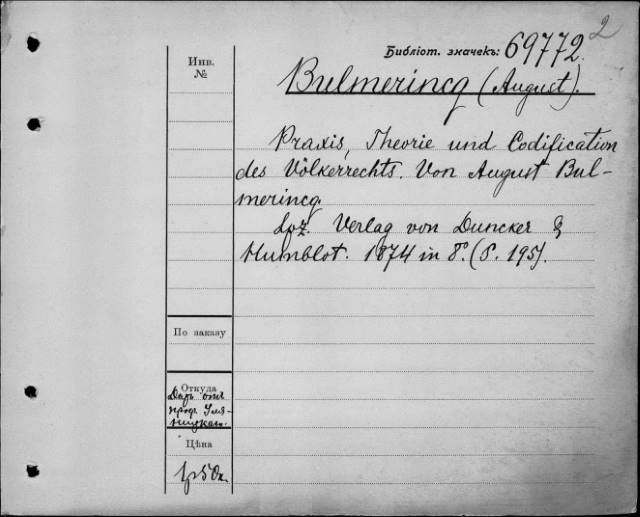 2
Библіот. значекъ: 69772.
Инв.
№
Bulmerincq (August).
Praxis, Theorie und Codification
des Völkerrechts. Von August Bul-
merincq.
Lpz. Verlag von Duncker &
Humblot. 1874 in 8°. (S. 195).
По заказу
Откуда
Даръ отъ
проф. Уля-
ницкаго.
Цѣна
1р50к.